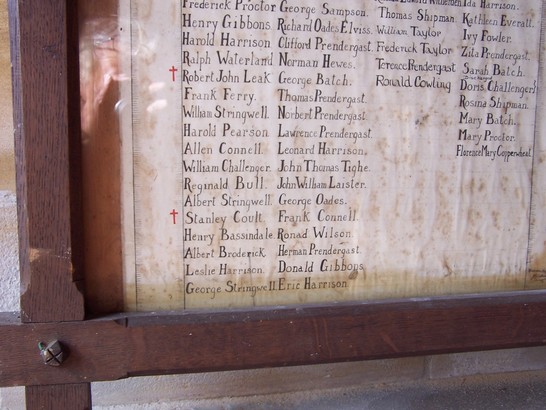 Frederick Proctor George Sampson.
Henry Gibbons. Richard Oades Elviss.
Harold Harrison. Clifford Prendergast.
Ralph Waterland Norman Hewes.
† Robert John Leak George Batch.
Frank Ferry. Thomas Prendergast.
William Stringwell. Norbert Prendergast.
Harold Pearson. Lawrence Prendergast.
Allen Connell. Leonard Harrison.
William Challenger. John Thomas Tighe.
Reginald Bull. John William Laister.
Albert Stringwell. George Oades.
† Stanley Coult. Frank Connell.
Henry Bassindale. Ronad Wilson.
Albert Broderick. Herman Prendergast.
Leslie Harrison. Donald Gibbons.
George Stringwell. Eric Harrison
Ida Harrison.
Thomas Shipman. Kathleen Everall.
William Taylor Ivy Fowler.
Frederick Taylor Zita Prendergast.
Terence Prendergast Sarah Batch.
Ronald Cowling Doris Challenger
Rosina Shipman.
Mary Batch.
Mary Proctor.
Florence Mary Copperwheat.